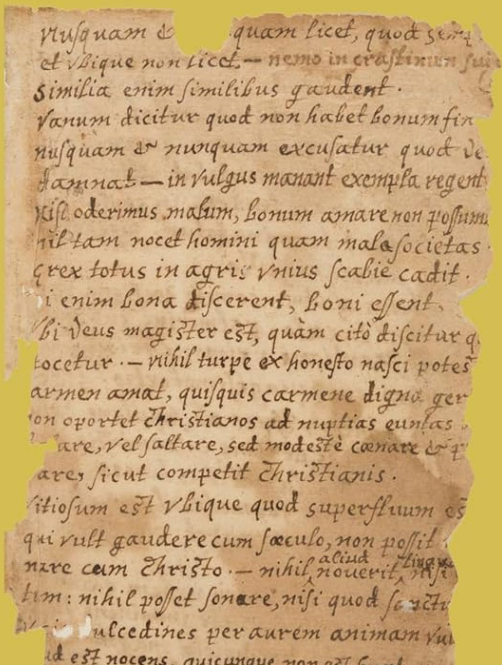 nusquam & quam licet, quod sem
et vbique non licet — nemo in crastinum
Similia enim similibus gaudent.
Vanum dicitur quod non habet bonum fin
nusquam & nunquam excusatur quod De
damnat — in vulgus manant exempla regent
Nisi oderimus malum, bonum amare non possum
nil tam nocet homini quam mala societas.
grex totus in agris vnius scabie cadit.
i enim bona discerent, boni essent.
Vbi Deus magister est, quàm citò discitur q
docetur. — nihil turpe ex honesto nasci potes
armen amat, quisquis carmene digna ger
on oportet Christianos ad nuptias euntas
are, vel saltare, sed modestè cœnare &
are, sicut competit Christianis.
Vitiosum est vbique quod superfluum es
qui vult gaudere cum sœculo, non possit
nare cum Christo. — nihil aliud noverit nisi
tum: nihil posset sonare, nisi quod sanctu
dulcedines per aurem animam vul
id est nocens, quicunque non est